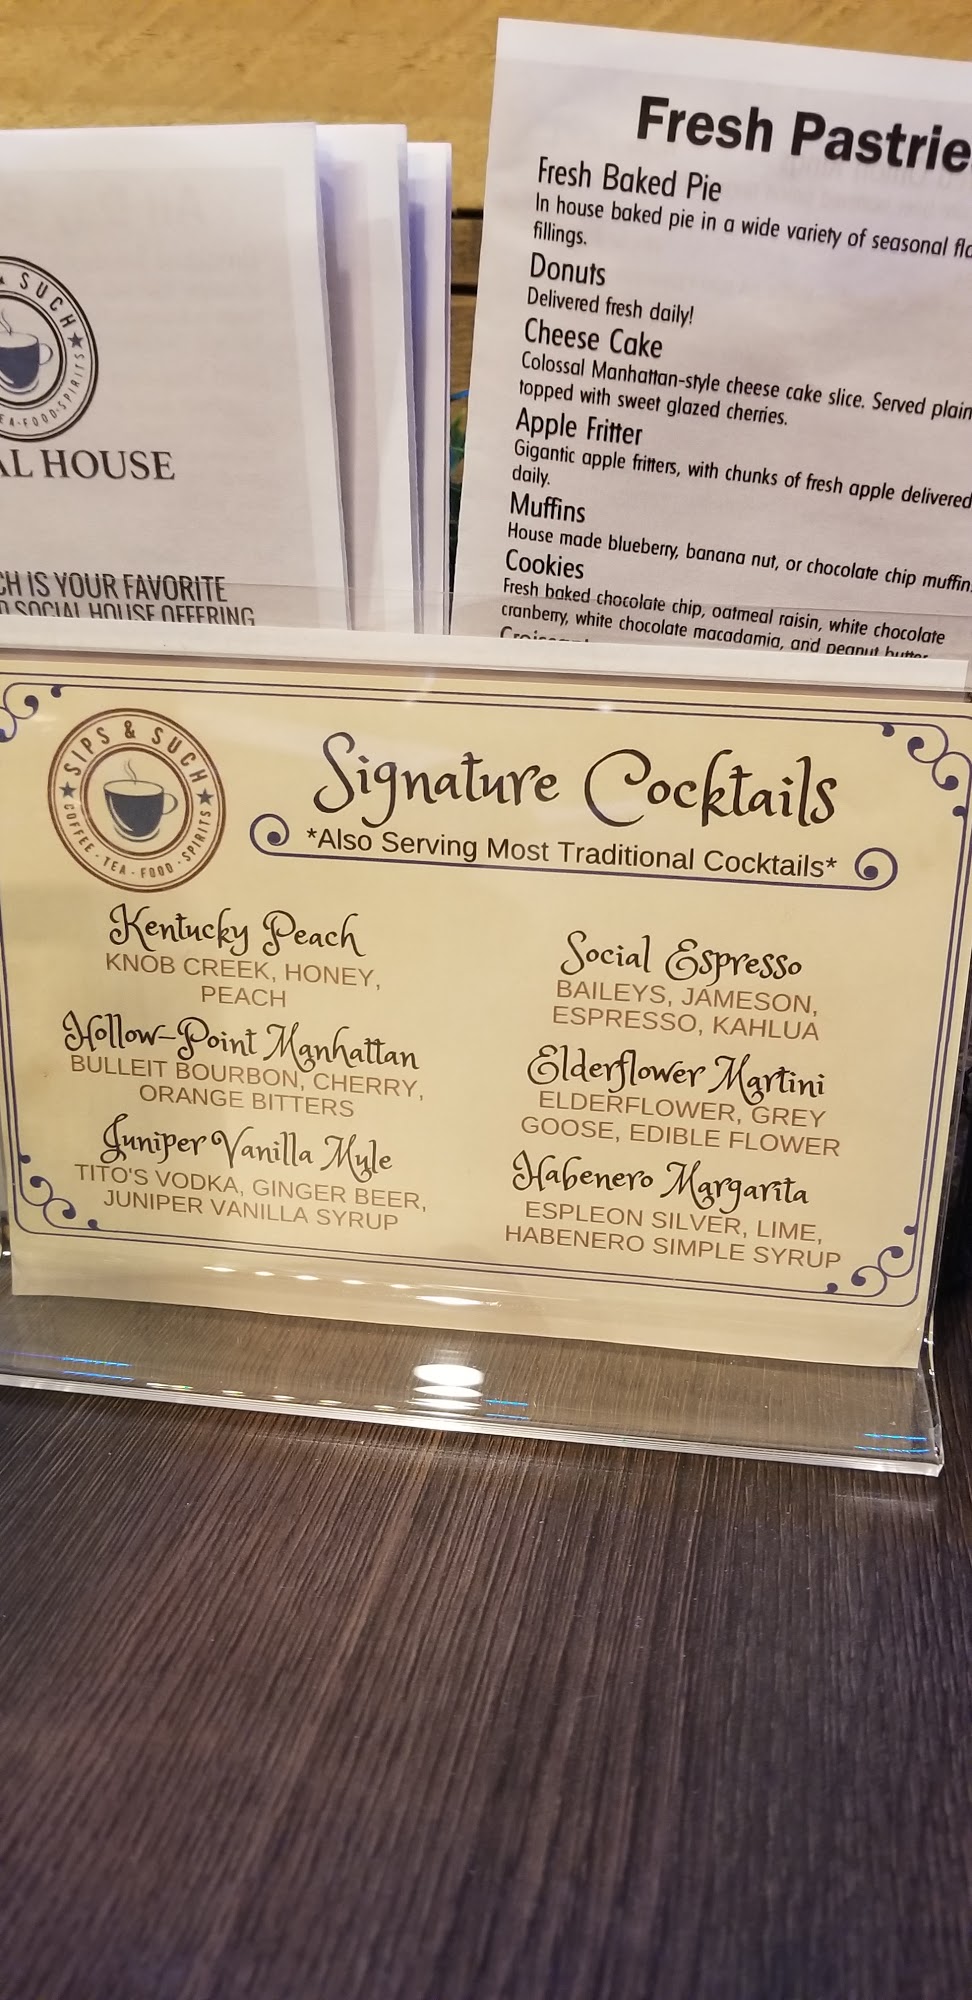 SUCH
EA·FOOD·SPIRITS
AL HOUSE
CH IS YOUR FAVORITE
SOCIAL HOUSE OFFERING
Fresh Pastrie
Fresh Baked Pie
In house baked pie in a wide variety of seasonal fla
fillings.
Donuts
Delivered fresh daily!
Cheese Cake
Colossal Manhattan-style cheese cake slice. Served plain
topped with sweet glazed cherries.
Apple Fritter
Gigantic apple fritters, with chunks of fresh apple delivered
daily.
Muffins
House made blueberry, banana nut, or chocolate chip muffin
Cookies
Fresh baked chocolate chip, oatmeal raisin, white chocolate
cranberry, white chocolate macadamia, and peanut butter
SIPS & SUCH
COFFEE · TEA · FOOD · SPIRITS
Signature Cocktails
*Also Serving Most Traditional Cocktails*
Kentucky Peach
KNOB CREEK, HONEY,
PEACH
Hollow-Point Manhattan
BULLEIT BOURBON, CHERRY,
ORANGE BITTERS
Juniper Vanilla Mule
TITO'S VODKA, GINGER BEER,
JUNIPER VANILLA SYRUP
Social Espresso
BAILEYS, JAMESON,
ESPRESSO, KAHLUA
Elderflower Martini
ELDERFLOWER, GREY
GOOSE, EDIBLE FLOWER
Habenero Margarita
ESPLEON SILVER, LIME,
HABENERO SIMPLE SYRUP